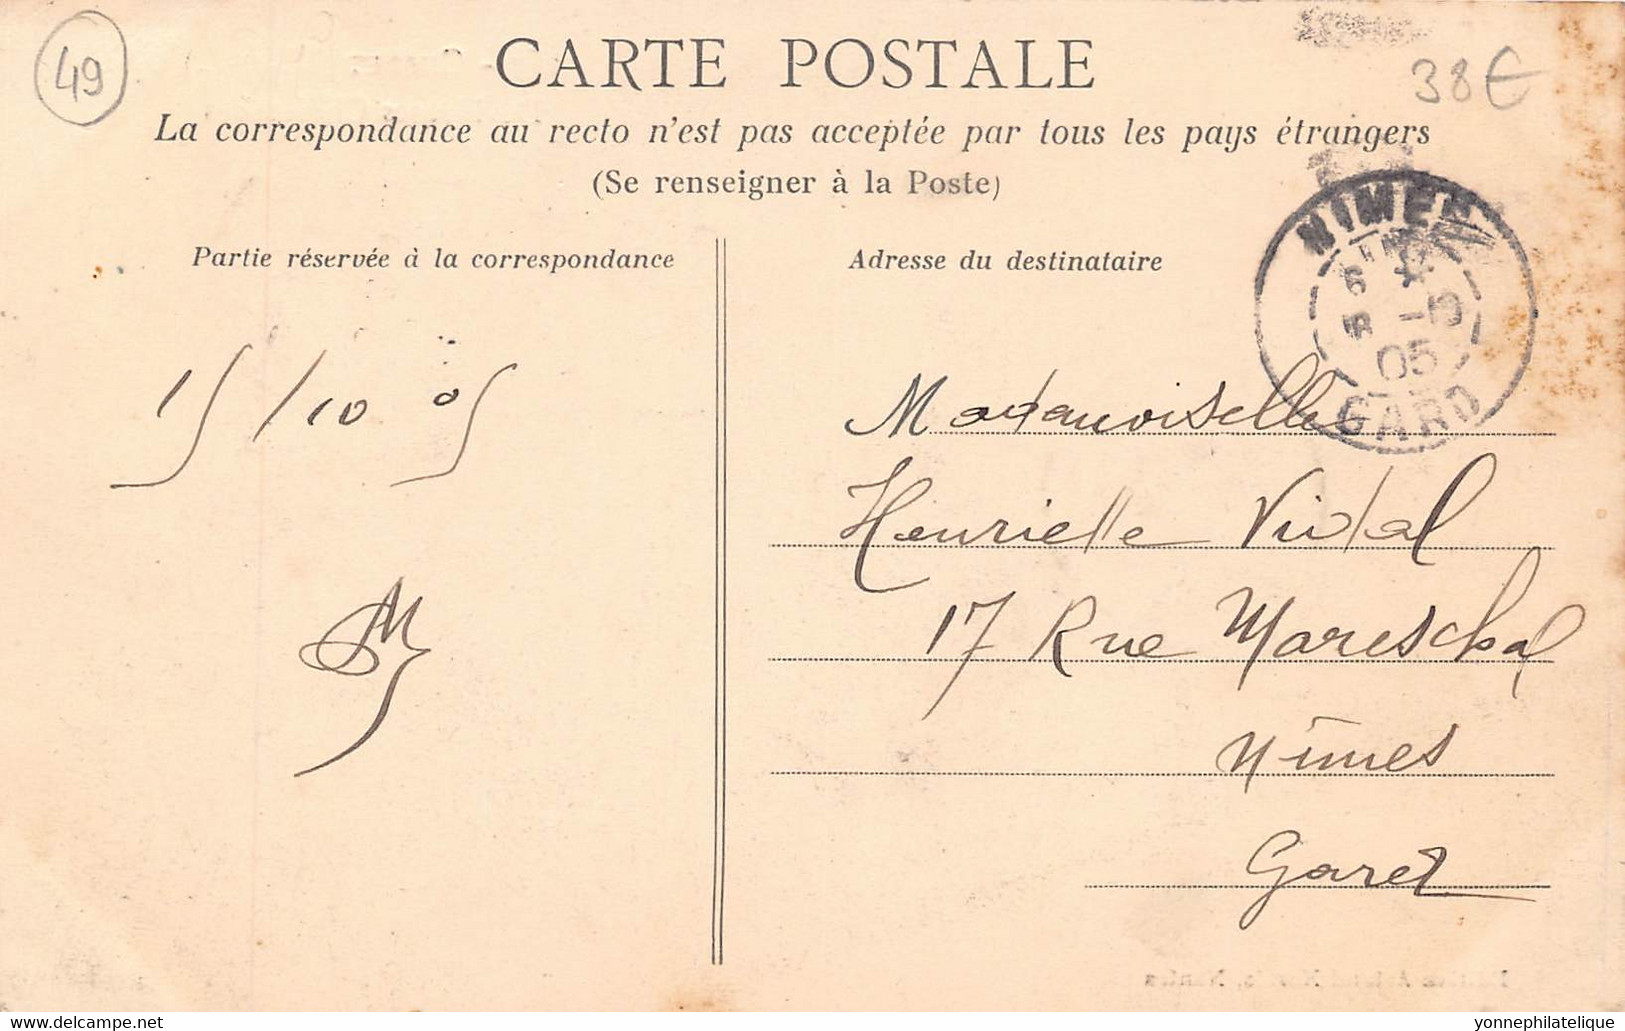 49
CARTE POSTALE
38€
La correspondance au recto n'est pas acceptée par tous les pays étrangers
(Se renseigner à la Poste)
Partie réservée à la correspondance
Adresse du destinataire
NIMES
6
05
GARD
15/10 05
Mademoiselle
Henriette Vidal
17 Rue Mareschal
Nîmes
Gard
delcampe.net
yonnephilatelique